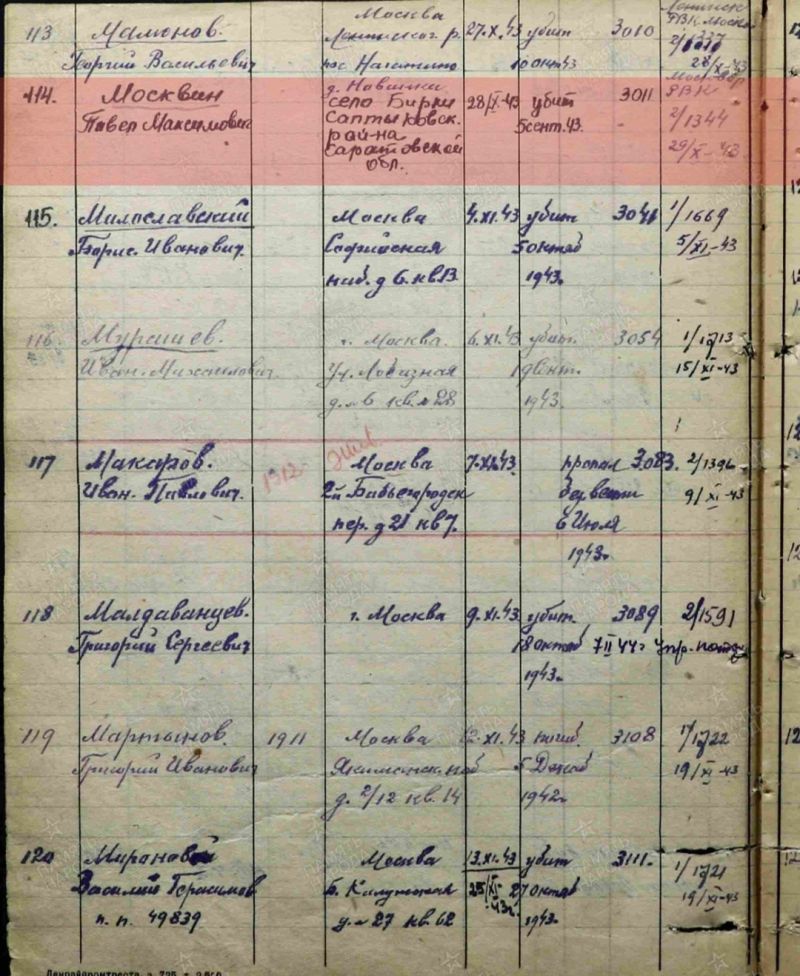 113 Мамонов. Москва 27.X.43 убит 3010
Георгий Васильевич пос Нагатино 10 окт 43 2/1337
114. Москвин д. Новинки 28/X-43 убит 3011 РВК
Павел Максимович село Бирки 5 сент. 43. 2/1344
Салтыковск. 29/X-43
рай-на
Саратовской
обл.
115. Милославский Москва 4.XI.43 убит 3041 1/1669
Борис. Иванович. Софийская 5 октяб 5/XI-43
наб. д 6. кв.13. 1943г.
116. г. Москва. 6.XI.43 убит. 3054 1/1713
Иван. Михайлович. Ул. 15/XI-43
д. № 6 кв. № 28 1943г.
117 Макаров. Москва 7.XI.43. пропал 3083. 2/1396
Иван. Павлович. 1912 2й Бабьегородск безвести 9/XI-43
пер. д 21 кв 7. 6 Июля
1943г.
118 Малдаванцев. г. Москва 9.XI.43 убит. 3089 2/1591
Григорий Сергеевич 18 октяб 7 II 44г
1943г.
119 Мартынов. 1911 Москва 12.XI.43 погиб. 3108 1/1722
Григорий Иванович Якиманск. наб 5 Декаб 19/XI-43
д. 2/12 кв. 14 1942г.
120 Москва 13.XI.43 убит 3111. 1/1721
Василий Герасимов Б. Калужская 25/XI-43г. 27 октяб 19/XI-43
п. п. 49839 д. № 27 кв. 62 1943г.